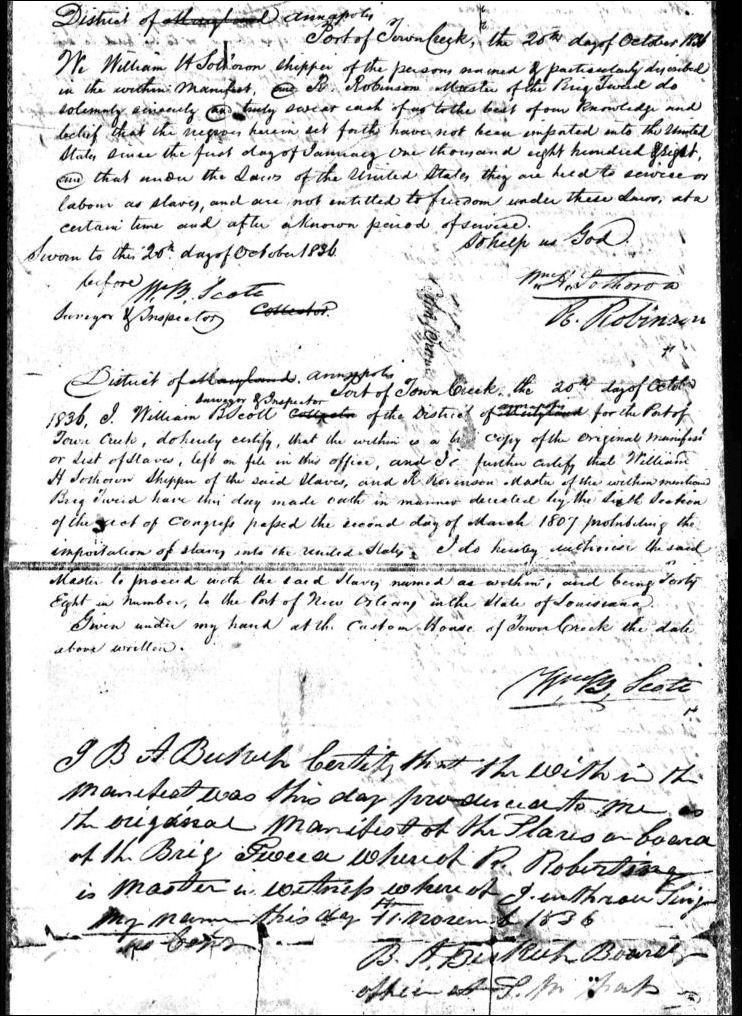 District of Maryland Annapolis
Port of Town Creek, the 20th day of October 1836
We William H Sothoron shipper of the persons named & particularly described
in the within Manifest, and R. Robinson Master of the Brig Tweed do
solemnly sincerely and truly swear each of us to the best of our knowledge and
belief that the negroes herein set forth have not been imported into the United
States since the first day of January one thousand eight hundred & eight,
and that under the Laws of the United States they are held to service or
labour as slaves, and are not entitled to freedom under these Laws, at a
certain time and after a known period of service.
So help us God.
Sworn to this 20th day of October 1836
before
Wm B. Scott
Surveyor & Inspector Collector
Wm H. Sothoron
R. Robinson
District of Maryland. Annapolis
Surveyor & Inspector Port of Town Creek, the 20th day of Octob
1836, I, William B Scott Collector of the District of Maryland Annapolis for the Port of
Town Creek, do hereby certify, that the within is a copy of the original Manifest
or List of Slaves, left on file in this office, and I further certify that William
H Sothoron Shipper of the said Slaves, and R Robinson Master of the within mentioned
Brig Tweed have this day made oath in manner directed by the Sixth Section
of the act of Congress passed the second day of March 1807 prohibiting the
importation of slaves into the United States. I do hereby authorise the said
Master to proceed with the said Slaves named as within, and being Forty
Eight in number, to the Port of New Orleans in the State of Louisiana
Given under my hand at the Custom House of Town Creek the date
above written.
Wm B, Scott
I B A Certify that the within the
Manifest was this day produced to me as
the original Manifest of the Slaves on board
of the Brig Tweed whereof R.
is Master in witness whereof I
my name this day 11 Novemb 1836
B. A. Board
officer at S. W.